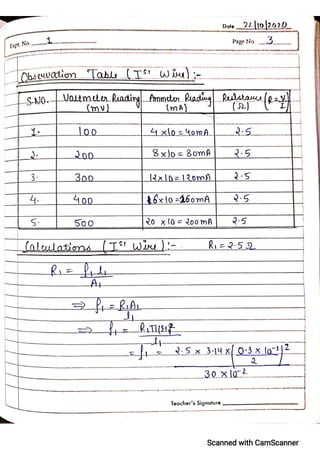 Date 22/10/2020
Expt. No. 1
Page No. 3
Observation Table (Ist Wire) :-
S.NO. Voltmeter Reading (mV) Ammeter Reading (mA) Resistance (R = V/I) (Ω)
1. 100 4 x 10 = 40mA 2.5
2. 200 8 x 10 = 80mA 2.5
3. 300 12 x 10 = 120mA 2.5
4. 400 16 x 10 = 160mA 2.5
5. 500 20 x 10 = 200mA 2.5
Calculations (Ist Wire) :- R₁ = 2.5 Ω
R₁ = ρ₁ l₁ / A₁
⇒ ρ₁ = R₁A₁ / l₁
⇒ ρ₁ = / l₁
= ρ₁ = 2.5 x 3.14 x (0.3 x 10⁻³ / 2)² / 30 x 10⁻²
Teacher's Signature
Scanned with CamScanner